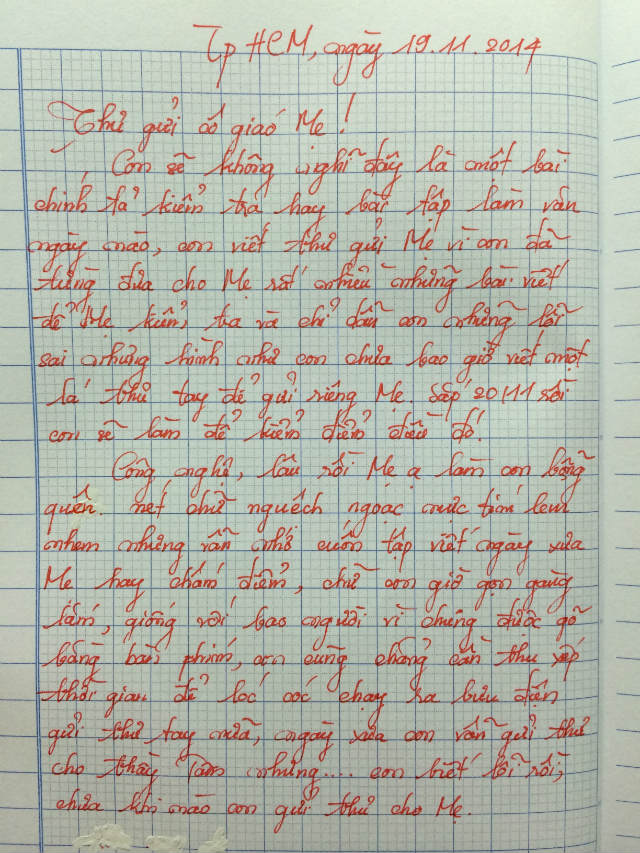 Tp HCM, ngày 19.11.2014
Thư gửi cô giáo Mẹ!
Con sẽ không nghĩ đây là một bài
chính tả kiểm tra hay bài tập làm văn
ngày nào, con viết thư gửi Mẹ vì con đã
từng đưa cho Mẹ rất nhiều những bài viết
để Mẹ kiểm tra và chỉ dẫn con những lỗi
sai nhưng hình như con chưa bao giờ viết một
lá thư tay để gửi riêng Mẹ. Sắp 20/11 rồi
con sẽ làm để kiểm điểm điều đó!
Công nghệ, lâu rồi Mẹ ạ làm con bỗng
quên nét chữ nguếch ngoạc mực tím lem
nhem nhưng vẫn nhớ cuốn tập viết ngày xưa
Mẹ hay chấm điểm, chữ con giờ gọn gàng
lắm, giống với bao người vì chúng được gõ
bằng bàn phím, con cũng chẳng cần thu xếp
thời gian để lóc cóc chạy ra bưu điện
gửi thư tay nữa, ngày xưa con vẫn gửi thư
cho thầy Tâm nhưng.... con biết lỗi rồi,
chưa khi nào con gửi thư cho Mẹ.